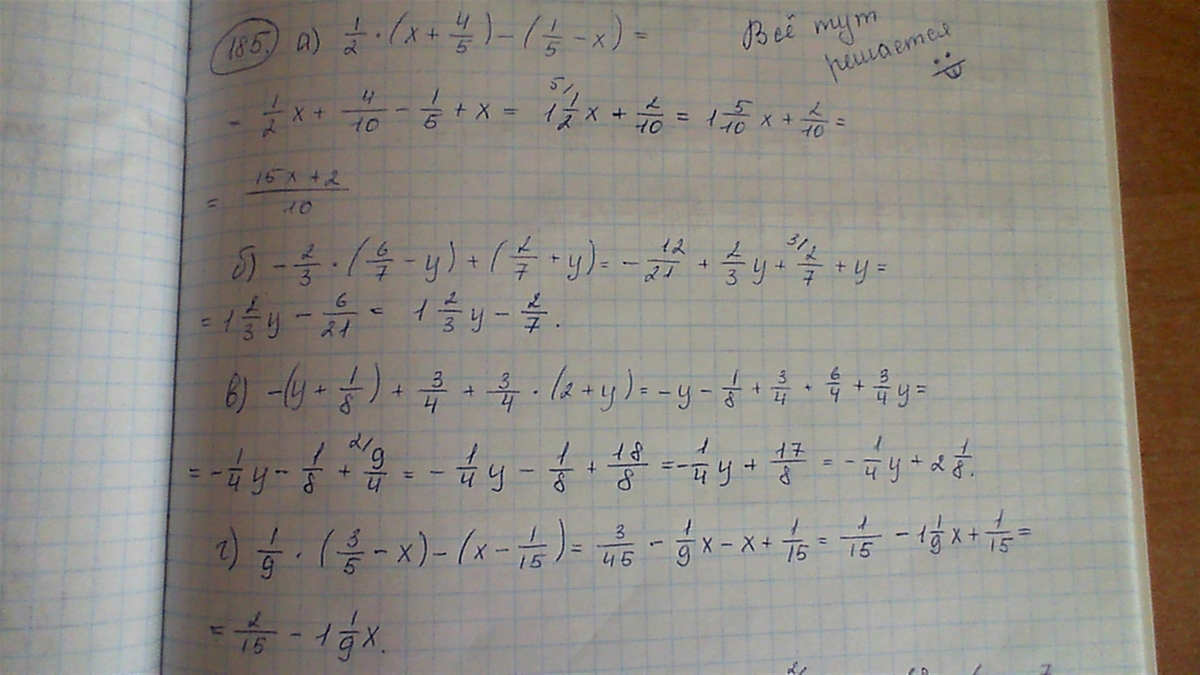 185. а) 1/2 · (x + 4/5) − (1/5 − x) =
Всё тут
решается
- 1/2 x + 4/10 − 1/5 + x = 1 5/ 1/2 x + 2/10 = 1 5/10 x + 2/10 =
= (15x + 2)/10
б) − 2/3 · (6/7 − y) + (2/7 + y) = − 12/21 + 2/3 y + 3/ 2/7 + y =
= 1 2/3 y − 6/21 = 1 2/3 y − 2/7.
в) −(y + 1/8) + 3/4 + 3/4 · (2 + y) = −y − 1/8 + 3/4 + 6/4 + 3/4 y =
= − 1/4 y − 1/8 + 2/ 9/4 = − 1/4 y − 1/8 + 18/8 = − 1/4 y + 17/8 = − 1/4 y + 2 1/8.
г) 1/9 · (3/5 − x) − (x − 1/15) = 3/45 − 1/9 x − x + 1/15 = 1/15 − 1 1/9 x + 1/15 =
= 2/15 − 1 1/9 x.